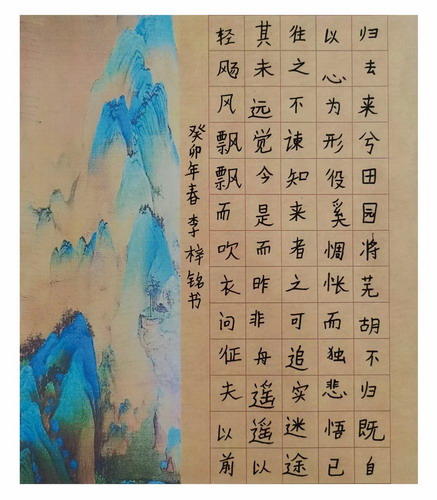 归去来兮田园将芜胡不归既自
以心为形役奚惆怅而独悲悟已
往之不谏知来者之可追实迷途
其未远觉今是而昨非舟遥遥以
轻飏风飘飘而吹衣问征夫以前
癸卯年春李梓铭书